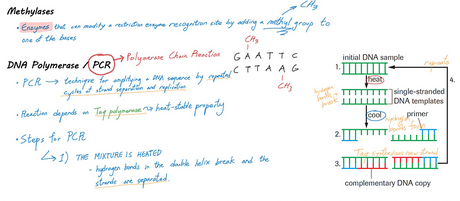 Methylases
• Enzymes that can modify a restriction enzyme recognition site by adding a methyl group to
one of the bases
CH₃
DNA Polymerase / PCR → Polymerase Chain Reaction
• PCR → technique for amplifying a DNA sequence by repeated
cycles of strand separation and replication
• Reaction depends on Taq polymerase → heat-stable property
• Steps for PCR
↳ 1) THE MIXTURE IS HEATED
- hydrogen bonds in the double helix break and the
strands are separated.
CH₃
G A A T T C
C T T A A G
CH₃
initial DNA sample
1.
heat
hydrogen
bonds
break
single-stranded
DNA templates
cool
primer
hydrogen
bonds form
2.
3. Taq synthesizes new strand
complementary DNA copy
4.
repeats